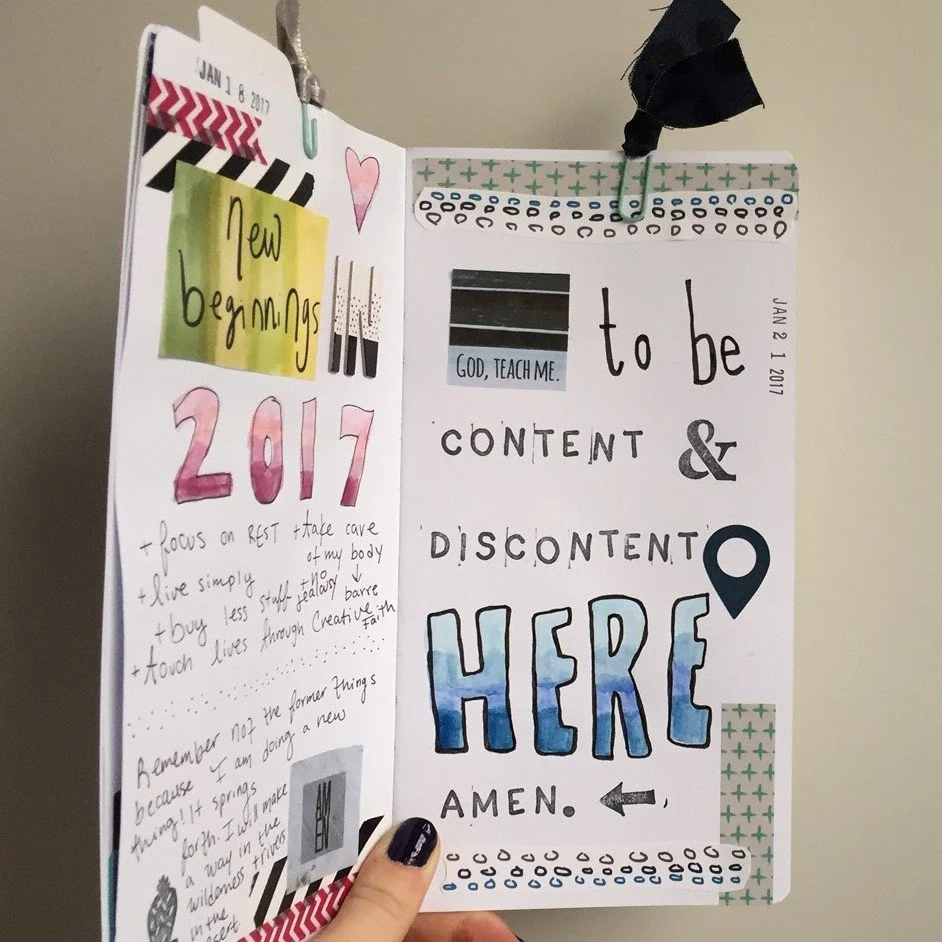 JAN 18 2017
new
beginnings IN
2017
+ focus on REST + take care
of my body
↓
barre
+ live simply + no
jealousy
+ buy less stuff
+ touch lives through Creative
Faith
Remember not the former things
because I am doing a new
thing! It springs
forth. I will make
a way in the
wilderness + rivers
in the
AM
EN
GOD, TEACH ME. to be
JAN 21 2017
CONTENT &
DISCONTENT
HERE
AMEN. ←